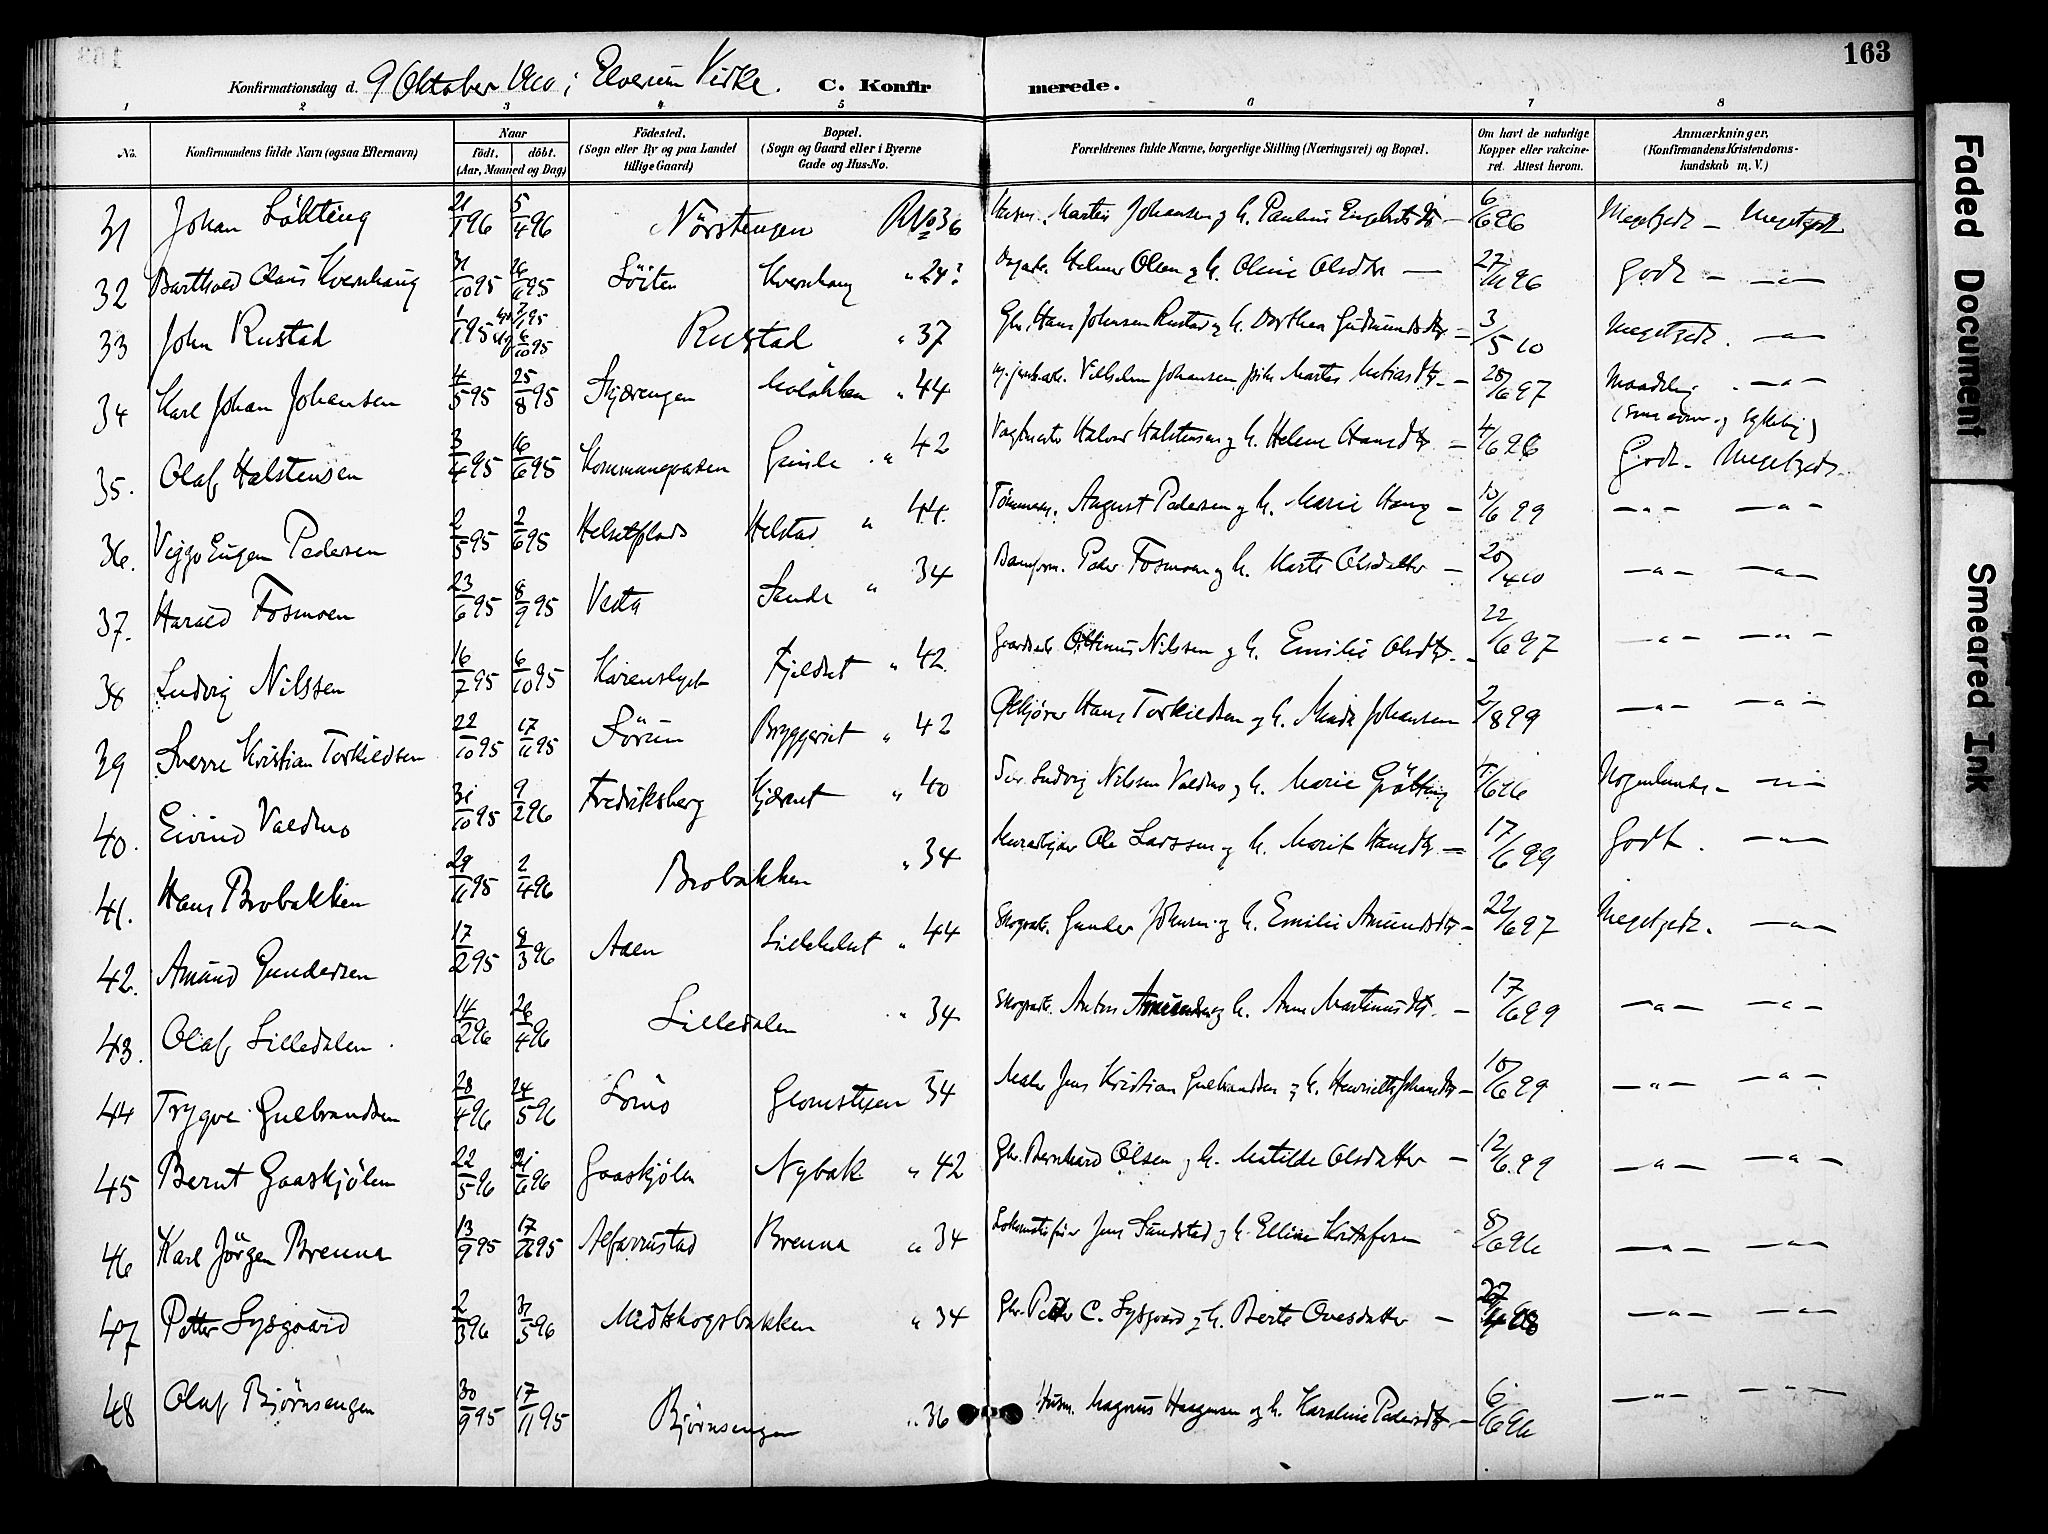 163
Konfirmationsdag d. 9 Oktober 1910 i Elverum Kirke. C. Konfirmerede.
1 2 3 4 5 6 7 8
No. Konfirmandens fulde Navn (ogsaa Efternavn) Naar født, døbt. (Aar, Maaned og Dag) Födested. (Sogn eller By og paa Landet tillige Gaard) Bopæl. (Sogn og Gaard eller i Byerne Gade og Hus-No. Forældrenes fulde Navne, borgerlige Stilling (Næringsvei) og Bopæl. Om havt de naturlige Kopper eller vakcineret. Attest herom. Anmærkninger. (Konfirmandens Kristendomskundskab m. V.)
31 Johan Löhting 21/1 96 5/4 96 Nörstengen R No 36 Husm. Martin Johansen og h. Pauline Engebretsdtr — 6/6 96 Megetgodt — Megetgodt
32 Barthold Olaus Kvernhaug 31/10 95 95 Löiten Kvernhaug " 24? Helmer Olsen og h. Oline Olsdtr — 96 Godt — — " —
33 John Rustad 1/1 95 6/10 95 Rustad " 37 Gbr. Hans Johnsen Rustad og h. Dorthea Gudmundsdtr — 3/5 10 Megetgodt. — " —
34 Karl Johan Johansen 4/5 95 25/8 95 Skjærengen " 44 Vilhelm Johansen Marte Matiasdtr. — 28/6 97 Maadelig — " —
35. Olaf Halstensen 3/4 95 16/6 95 Kommunegaarden " 42 Halvor Halstensen og h. Helene Hansdtr — 4/6 96 Godt. Megetgodt.
36. Viggo Eugen Pedersen 2/5 95 2/6 95 Helsetplads Helstad " 44. August Pedersen og h. Marie Haug — 10/6 99 — " — — " —
37. Harald Fosmoen 23/6 95 8/9 95 Vesta Sande " 34 Peder Fosmoen og h. Marte Olsdatter — 20/4 10 — " — — " —
38 Ludvig Nilssen 16/7 95 6/10 95 Karenslyst Fjeldset " 42. Ottinus Nilssen og h. Emilie Olsdtr. — 22/6 97 — " — — " —
39 Sverre Kristian Torkildsen 22/10 95 17/11 95 Sörum Bryggeriet " 42 Ølkjører Hans Torkildsen og h. Mina Johansen 2/8 99 — " — — " —
40. Eivind Valdmo 31/10 95 9/2 96 Fredriksberg Kjærnet " 40 Ludvig Nilsen Valdmo og h. Marie Grötting Nogenlunde — — " —
41. Hans Brobakken 29/11 95 2/4 96 Brobakken " 34 Ole Larssen og h. Marit Hansdtr. — 17/6 99 Godt. — " —
42. Amund Gundersen 17/2 95 8/3 96 Aaen " 44 Skogsarb. Gunder Johnsen og h. Emilie Amundsdtr — 22/6 97 Megetgodt. — " —
43. Olaf Lilledalen. 14/2 96 26/4 96 Lilledalen " 34 Skogsarb. Anton Amundsen og h. Anne Martinusdtr. — 17/6 99 — " — — " —
44 Trygve Gulbrandsen 28/4 96 24/5 96 Sörno Glomstuen 34 Maler Jens Kristian Gulbrandsen og h. Henriette Johansdtr — 10/6 99 — " — — " —
45 Bernt Gaaskjølen 22/5 96 21/6 96 Gaaskjølen Nybak " 42 Gbr. Bernhard Olsen og h. Matilde Olsdatter — 12/6. 99 — " — — " —
46 Karl Jörgen Brenna 13/9 95 17/11 95 Alfarrustad Brenna " 34 Jens Sundstad og h. Elline Kristofersen — 8/6 96 — " — — " —
47 Petter Sysgaard 2/3 96 31/5 96 Midtskogsbakken " 34 Gbr. Petter C. Sysgaard og h. Berte Ovesdatter — — " — — " —
48 Olaf Björnsengen 30/9 95 17/11 95 Björnsengen " 36 Husm. Magnus Haagensen og h. Karoline Pedersdtr — 6/6 96 — " — — " —
Faded Document
Smeared Ink